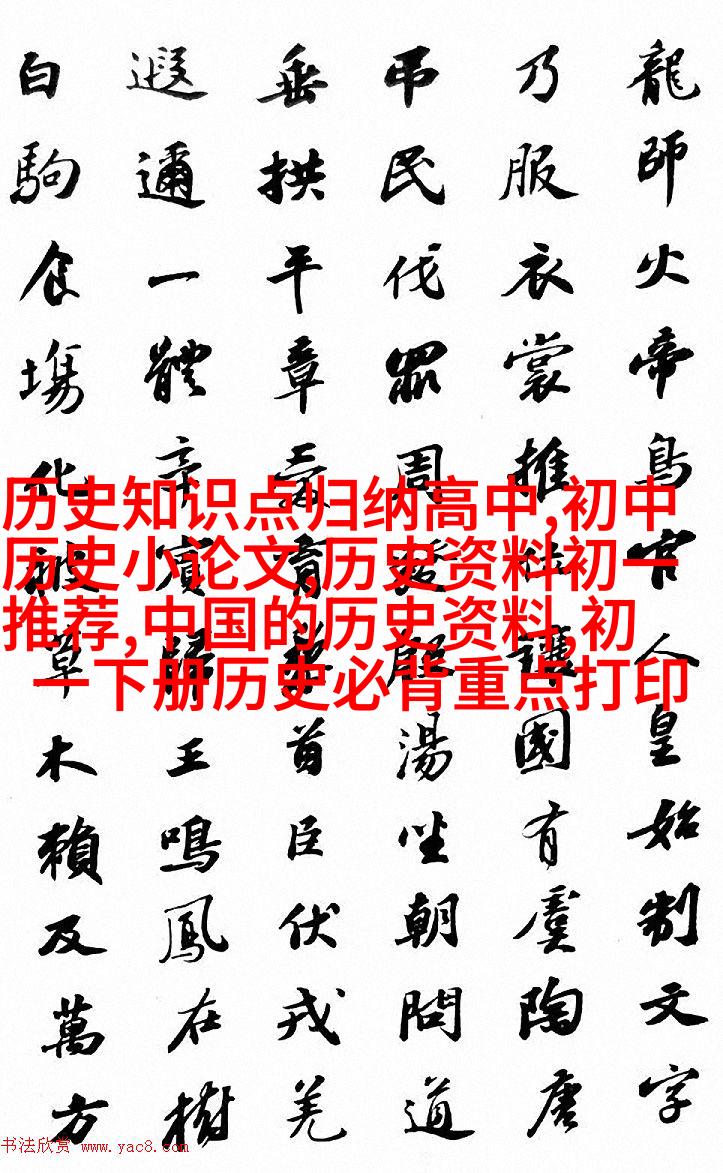 龍師火帝鳥官人皇始制文字
乃服衣裳推位讓國有虞陶唐
弔民伐罪周發殷湯坐朝問道
垂拱平章愛育黎首臣伏戎羌
遐邇一體率賓歸王鳴鳳在樹
白駒食場化被草木賴及萬方
历史知识点归纳高中,初中
历史小论文,历史资料初一
推荐,中国的历史资料,初
一下册历史必背重点打印
书法欣赏 www.yac8.com